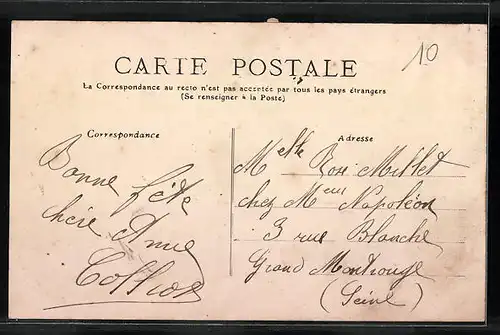 10
CARTE POSTALE
La Correspondance au recto n'est pas acceptée par tous les pays étrangers
(Se renseigner à la Poste)
Correspondance
Bonne fête
chère Amie
Adresse
Melle Rose Millet
chez Meur Napoléon
3 rue Blanche
Grand Montrouge
(Seine)